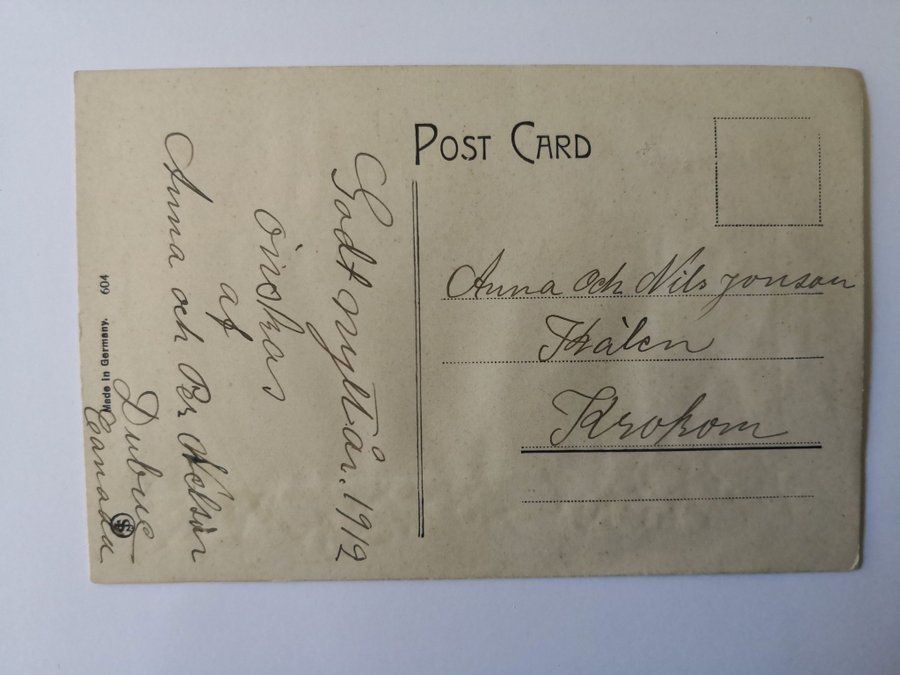 POST CARD
Godt nytt år. 1912
önskas
af
Anna och Pr Nelson
Dubuc
Canada
Anna och Nils Jonson
Krokom
Made in Germany. 604